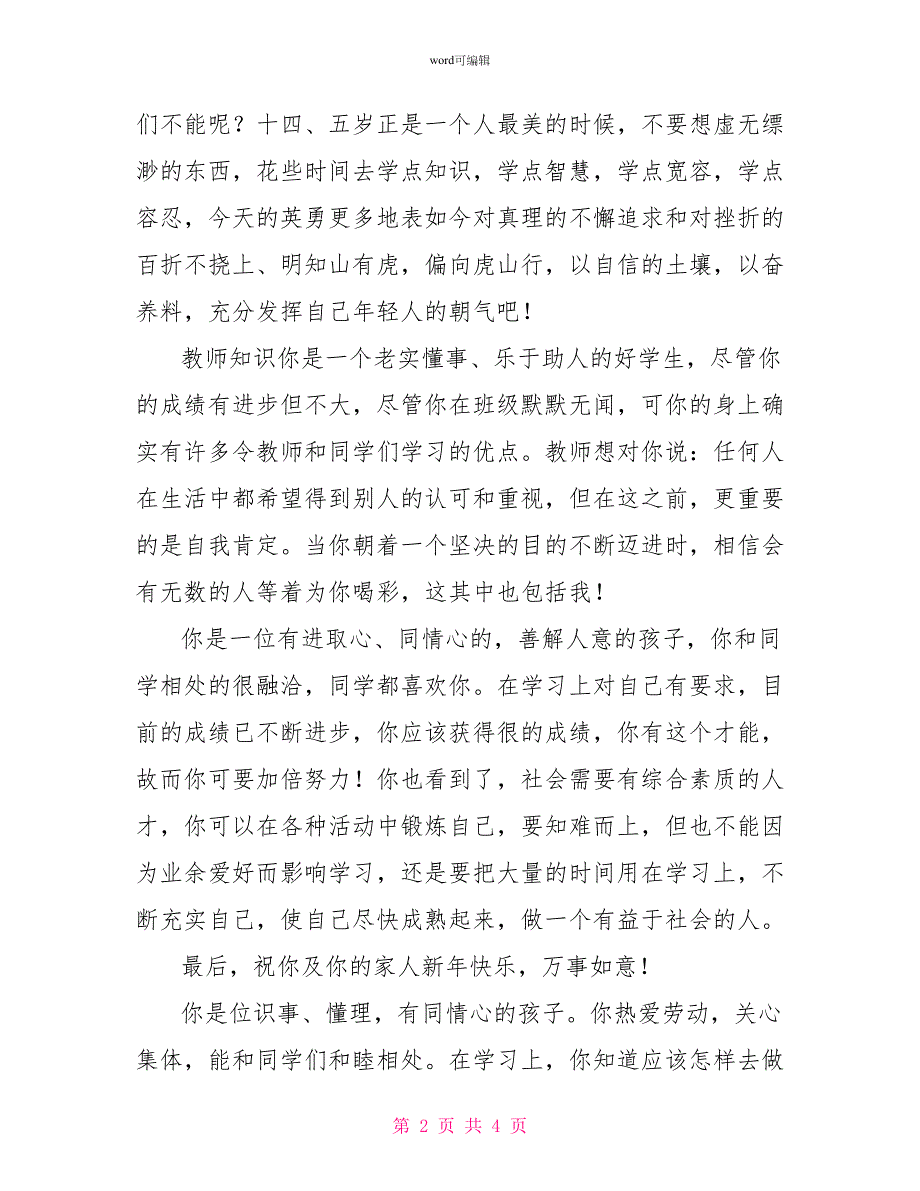 word可编辑
们不能呢？十四、五岁正是一个人最美的时候，不要想虚无缥
渺的东西，花些时间去学点知识，学点智慧，学点宽容，学点
容忍，今天的英勇更多地表如今对真理的不懈追求和对挫折的
百折不挠上、明知山有虎，偏向虎山行，以自信的土壤，以奋
养料，充分发挥自己年轻人的朝气吧！
教师知识你是一个老实懂事、乐于助人的好学生，尽管你
的成绩有进步但不大，尽管你在班级默默无闻，可你的身上确
实有许多令教师和同学们学习的优点。教师想对你说：任何人
在生活中都希望得到别人的认可和重视，但在这之前，更重要
的是自我肯定。当你朝着一个坚决的目的不断迈进时，相信会
有无数的人等着为你喝彩，这其中也包括我！
你是一位有进取心、同情心的，善解人意的孩子，你和同
学相处的很融洽，同学都喜欢你。在学习上对自己有要求，目
前的成绩已不断进步，你应该获得很的成绩，你有这个才能，
故而你可要加倍努力！你也看到了，社会需要有综合素质的人
才，你可以在各种活动中锻炼自己，要知难而上，但也不能因
为业余爱好而影响学习，还是要把大量的时间用在学习上，不
断充实自己，使自己尽快成熟起来，做一个有益于社会的人。
最后，祝你及你的家人新年快乐，万事如意！
你是位识事、懂理，有同情心的孩子。你热爱劳动，关心
集体，能和同学们和睦相处。在学习上，你知道应该怎样去做
第 2 页 共 4 页